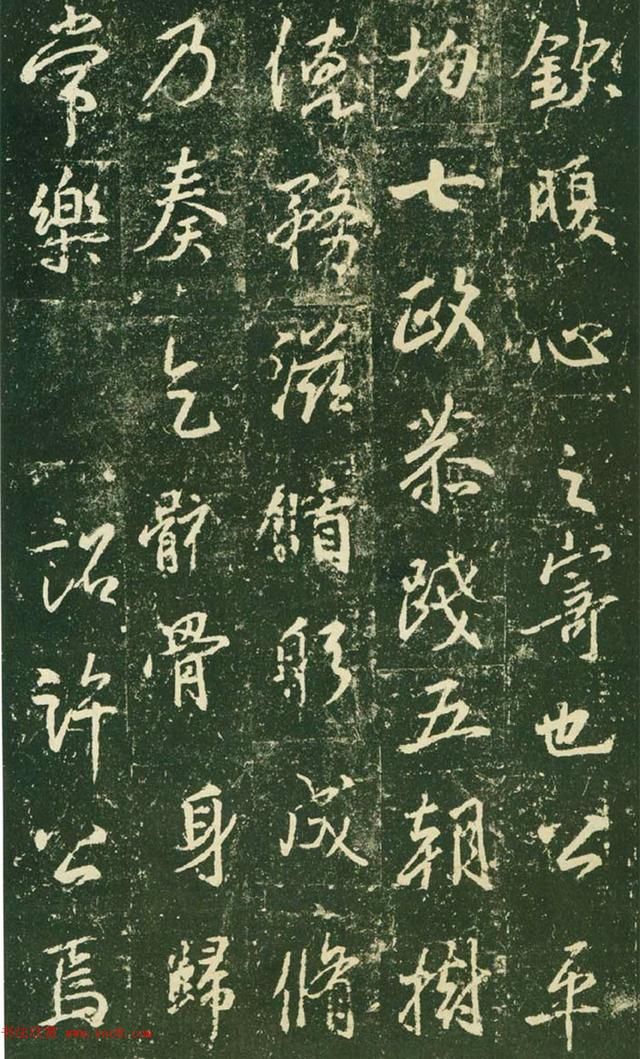 欽腹心之寄也公平
均七政恭踐五朝樹
德務滋躬脩
乃奏乞骸骨身歸
常樂 詔許公焉